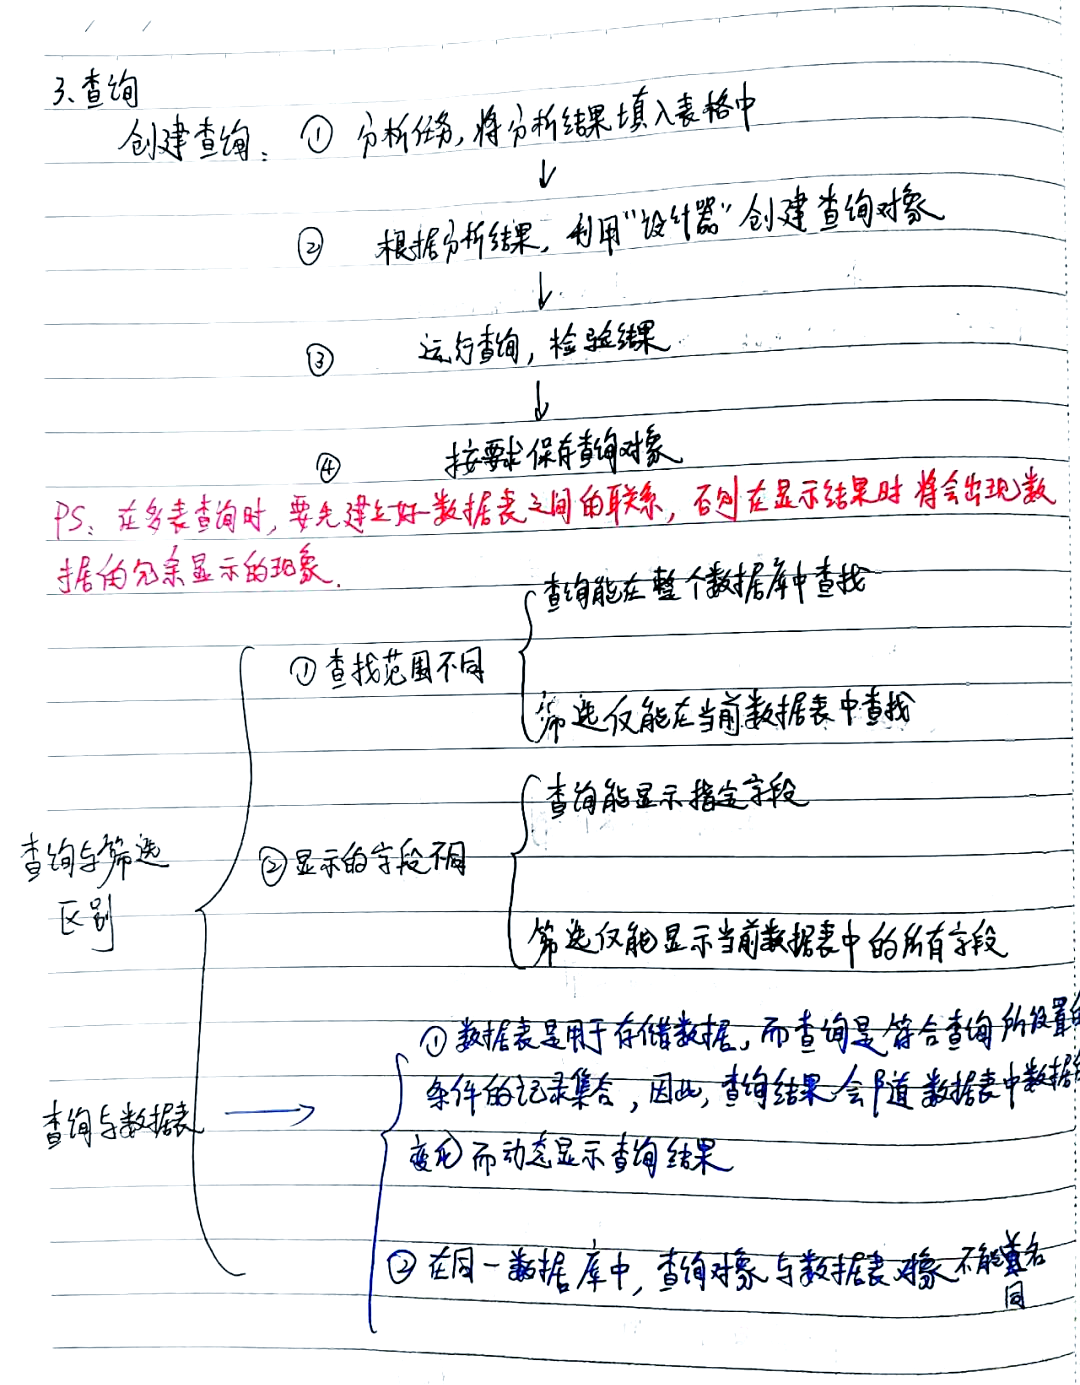 3、查询
创建查询: ① 分析任务,将分析结果填入表格中
↓
② 根据分析结果,利用“设计器”创建查询对象
↓
③ 运行查询,检验结果
↓
④ 按要求保存查询对象
PS: 在多表查询时,要先建立好数据表之间的联系,否则在显示结果时将会出现数
据的冗余显示的现象.
查询与筛选
区别
① 查找范围不同
查询能在整个数据库中查找
筛选仅能在当前数据表中查找
② 显示的字段不同
查询能显示指定字段
筛选仅能显示当前数据表中的所有字段
查询与数据表 →
① 数据表是用于存储数据,而查询是符合查询所设置的
条件的记录集合,因此,查询结果会随数据表中数据的
变化而动态显示查询结果
② 在同一数据库中,查询对象与数据表对象不能同名